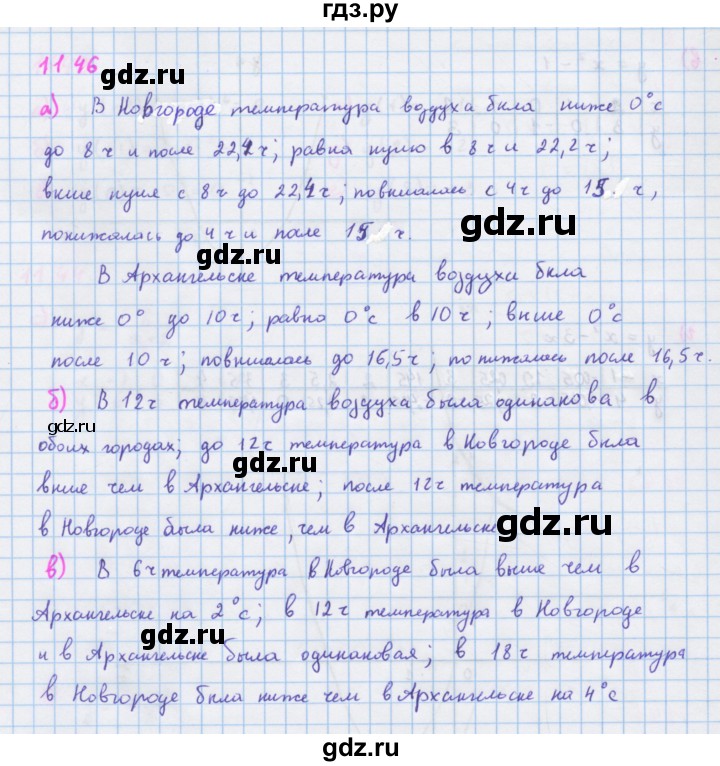 гдз.ру
1146
gdz.ru
а) В Новгороде температура воздуха была ниже 0°с
до 8 ч и после 22,2 ч; равна нулю в 8 ч и 22,2 ч;
выше нуля с 8 ч до 22,2 ч; повышалась с 4 ч до 15 ч,
gdz.ru
понижалась до 4 ч и после 15 ч.
gdz.ru
В Архангельске температура воздуха была
ниже 0° до 10 ч; равно 0°с в 10 ч; выше 0°с
после 10 ч; повышалась до 16,5 ч; понижалась после 16,5 ч.
б) В 12 ч температура воздуха была одинакова в
gdz.ru
обоих городах; до 12 ч температура в Новгороде была
gdz.ru
выше чем в Архангельске; после 12 ч температура
в Новгороде была ниже, чем в Архангельске
gdz.ru
в) В 6 ч температура в Новгороде была выше чем в
Архангельске на 2°с; в 12 ч температура в Новгороде
gdz.ru
и в Архангельске была одинаковая; в 18 ч температура
в Новгороде была ниже чем в Архангельске на 4°с
gdz.ru